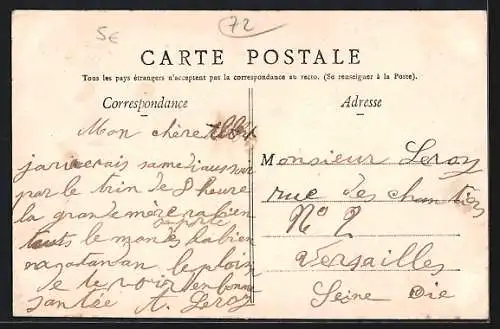 5€
72
CARTE POSTALE
Tous les pays étrangers n'acceptent pas la correspondance au recto. (Se renseigner à la Poste).
Correspondance
Adresse
Mon chère Albert
jariverais samedi au soir
par le trin de 8 heure
la grande mère va bien
touts le monde va bien
le ploisir
de te voir en bonne
santée A. Leroy
Monsieur Leroy
rue des chantiers
No 2
Versailles
Seine Oie